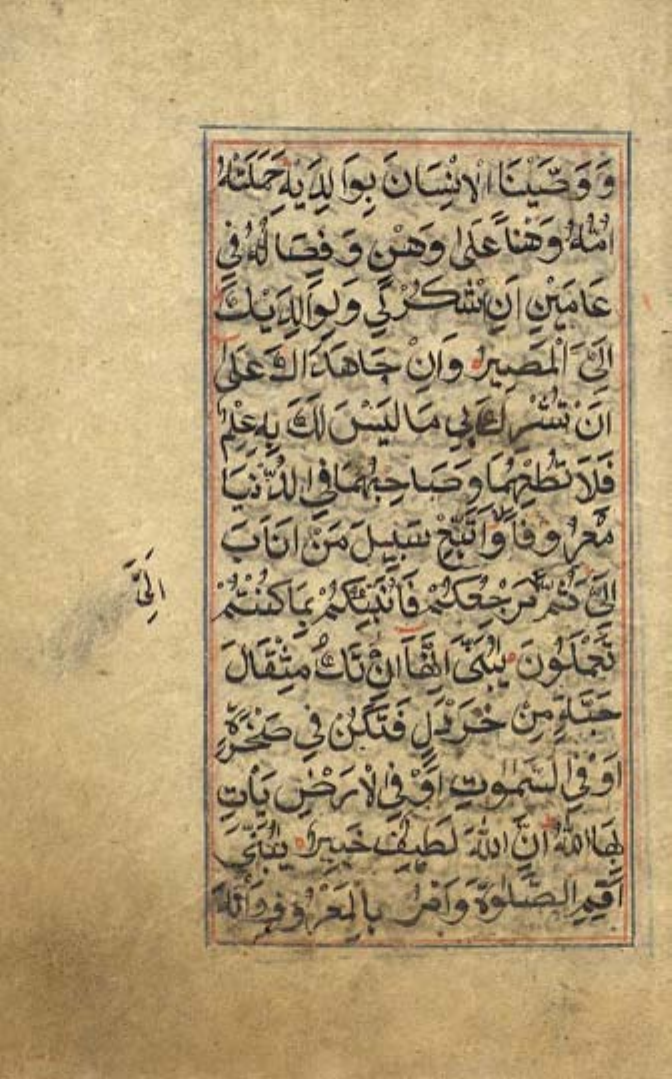 وَوَصَّيْنَا الْاِنْسَانَ بِوَالِدَيْهِ حَمَلَتْهُ
اُمُّهُ وَهْنًا عَلٰى وَهْنٍ وَفِصَالُهُ فِي
عَامَيْنِ اَنِ اشْكُرْ لِي وَلِوَالِدَيْكَ
اِلَيَّ الْمَصِيْرُ وَاِنْ جَاهَدَاكَ عَلٰى
اَنْ تُشْرِكَ بِي مَا لَيْسَ لَكَ بِهِ عِلْمٌ
فَلَا تُطِعْهُمَا وَصَاحِبْهُمَا فِي الدُّنْيَا
مَعْرُوفًا وَاتَّبِعْ سَبِيلَ مَنْ اَنَابَ
اِلَيَّ ثُمَّ مَرْجِعُكُمْ فَاُنَبِّئُكُمْ بِمَا كُنْتُمْ
اِلَيَّ
تَعْمَلُونَ يٰبُنَيَّ اِنَّهَا اِنْ تَكُ مِثْقَالَ
حَبَّةٍ مِنْ خَرْدَلٍ فَتَكُنْ فِي صَخْرَةٍ
اَوْ فِي السَّمٰوٰتِ اَوْ فِي الْاَرْضِ يَاْتِ
بِهَا اللّٰهُ اِنَّ اللّٰهَ لَطِيفٌ خَبِيرٌ يٰبُنَيَّ
اَقِمِ الصَّلٰوةَ وَاْمُرْ بِالْمَعْرُوفِ وَانْهَ